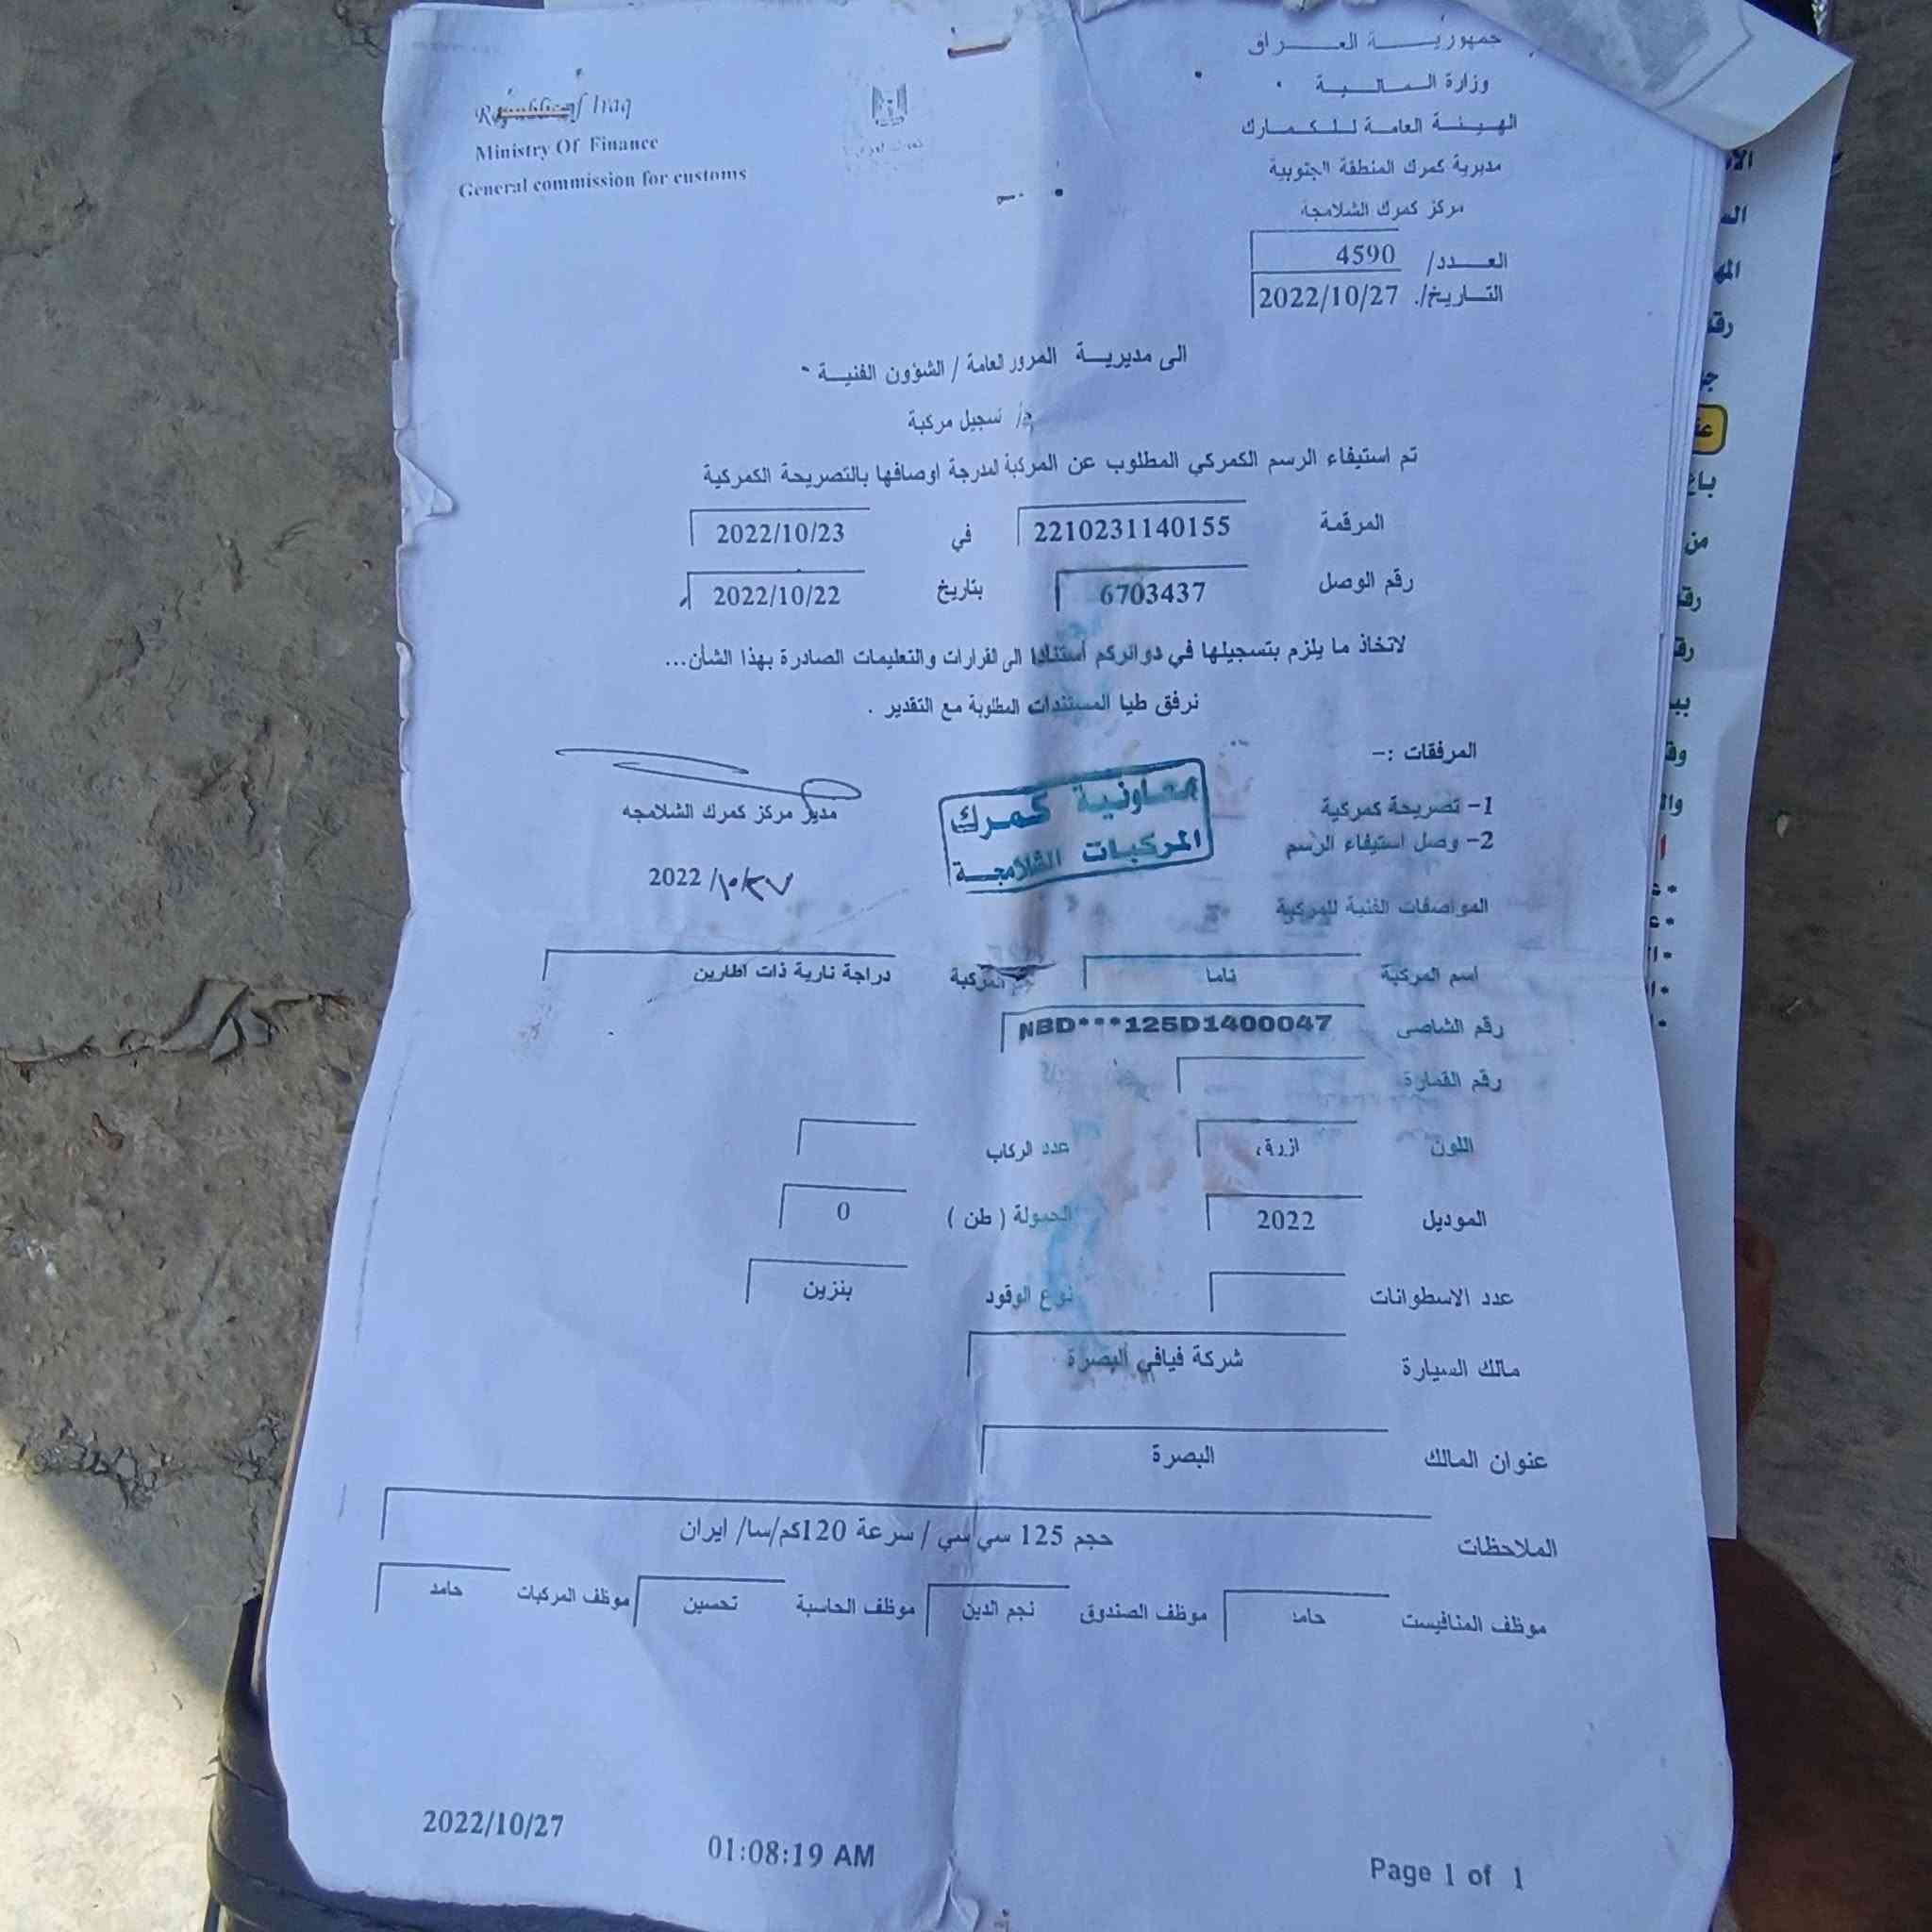 جمهوريـــة العـــراق
وزارة المـالـــيـة
الهيـئـة العامة للـكـمـارك
مديرية كمرك المنطقة الجنوبية
مركز كمرك الشلامجة
Republic of Iraq
Ministry Of Finance
General commission for customs
العـــدد/ 4590
التـــاريخ/. 2022/10/27
الى مديريـــة المرور العامة / الشؤون الفنيـــة
م/ تسجيل مركبة
تم استيفاء الرسم الكمركي المطلوب عن المركبة المدرجة اوصافها بالتصريحة الكمركية
المرقمة 2210231140155 في 2022/10/23
رقم الوصل 6703437 بتاريخ 2022/10/22
لاتخاذ ما يلزم بتسجيلها في دوائركم أستنادا الى القرارات والتعليمات الصادرة بهذا الشأن...
نرفق طيا المستندات المطلوبة مع التقدير .
المرفقات :-
1- تصريحة كمركية
2- وصل استيفاء الرسم
معاونية كمرك
المركبات الشلامجـة
مدير مركز كمرك الشلامجه
2022 /١٠/٢٧
المواصفات الفنية للمركبة
اسم المركبة تاما المركبة دراجة نارية ذات اطارين
رقم الشاصى NBD***125D1400047
رقم القمارة
اللون ازرق عدد الركاب
الموديل 2022 الحمولة ( طن ) 0
عدد الاسطوانات نوع الوقود بنزين
مالك السيارة شركة فيافي البصرة
عنوان المالك البصرة
الملاحظات حجم 125 سي سي / سرعة 120كم/سا/ ايران
موظف المنافيست حامد موظف الصندوق نجم الدين موظف الحاسبة تحسين موظف المركبات حامد
2022/10/27 01:08:19 AM Page 1 of 1